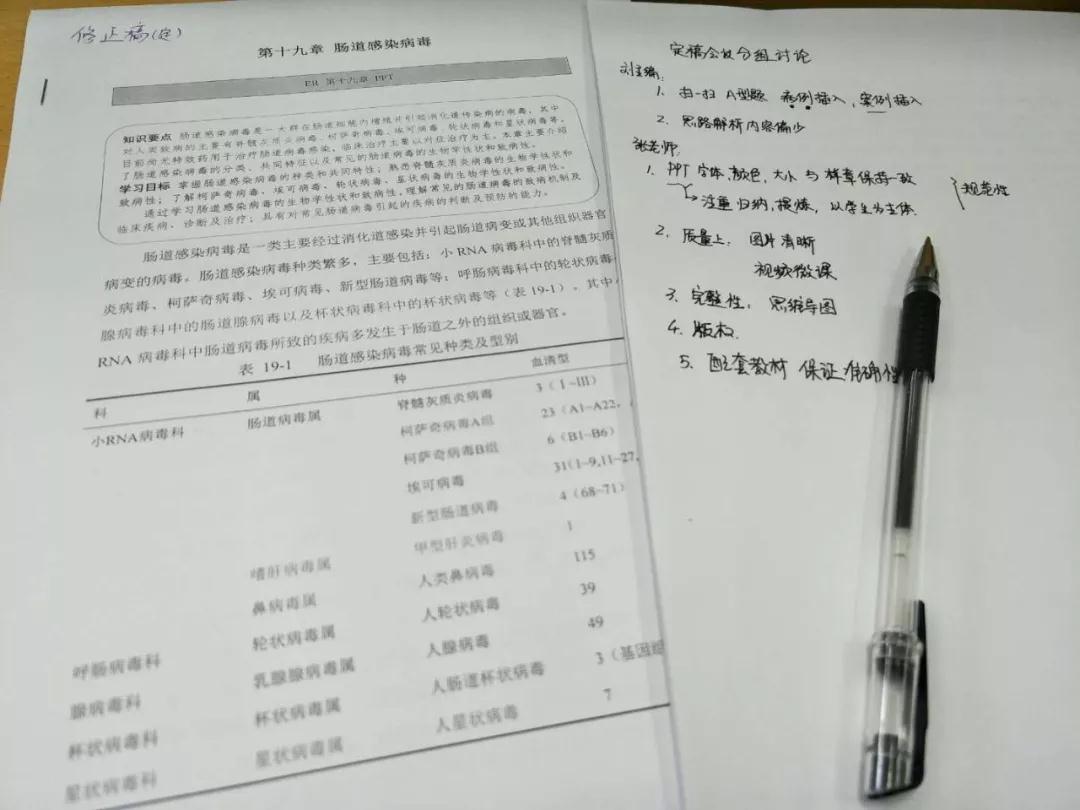 修正稿(定)
第十九章 肠道感染病毒
ER 第十九章 PPT
知识要点 肠道感染病毒是一大群在肠道细胞内增殖并引起消化道传染病的病毒，其中
对人类致病的主要有脊髓灰质炎病毒、柯萨奇病毒、埃可病毒、轮状病毒和星状病毒等。
目前尚无特效药用于治疗肠道病毒感染，临床治疗主要以对症治疗为主。本章主要介绍
了肠道感染病毒的分类、共同特征以及常见的肠道病毒的生物学性状和致病性。
学习目标 掌握肠道感染病毒的种类和共同特性；熟悉脊髓灰质炎病毒的生物学性状和
致病性；了解柯萨奇病毒、埃可病毒、轮状病毒、星状病毒的生物学性状和致病性。
通过学习肠道感染病毒的生物学性状和致病性，理解常见的肠道病毒的致病机制及
临床疾病、诊断及治疗；具有对常见肠道病毒引起的疾病的判断及预防的能力。
肠道感染病毒是一类主要经过消化道感染并引起肠道病变或其他组织器官
病变的病毒。肠道感染病毒种类繁多，主要包括：小 RNA 病毒科中的脊髓灰质
炎病毒、柯萨奇病毒、埃可病毒、新型肠道病毒等；呼肠病毒科中的轮状病毒
腺病毒科中的肠道腺病毒以及杯状病毒科中的杯状病毒等（表 19-1）。其中
RNA 病毒科中肠道病毒所致的疾病多发生于肠道之外的组织或器官。
表 19-1 肠道感染病毒常见种类及型别
科 属 种 血清型
小RNA病毒科 肠道病毒属 脊髓灰质炎病毒 3（Ⅰ~Ⅲ）
柯萨奇病毒A组 23（A1~A22，
柯萨奇病毒B组 6（B1~B6）
埃可病毒 31(1~9,11~27,
新型肠道病毒 4（68~71）
嗜肝病毒属 甲型肝炎病毒 1
鼻病毒属 人类鼻病毒 115
呼肠病毒科 轮状病毒属 人轮状病毒 39
腺病毒科 乳腺腺病毒属 人腺病毒 49
杯状病毒科 杯状病毒属 人肠道杯状病毒 3（基因组
星状病毒科 星状病毒属 人星状病毒 7
定稿会议分组讨论
刘主编：
1. 扫一扫 A型题 病例插入，案例插入
2. 思路解析内容偏少
张老师：
1. PPT 字体，颜色，大小 与 样章保持一致
注重归纳，提炼，以学生为主体.
规范性
2. 质量上： 图片清晰
视频微课
3. 完整性： 思维导图
4. 版权.
5. 配套教材 保证准确性